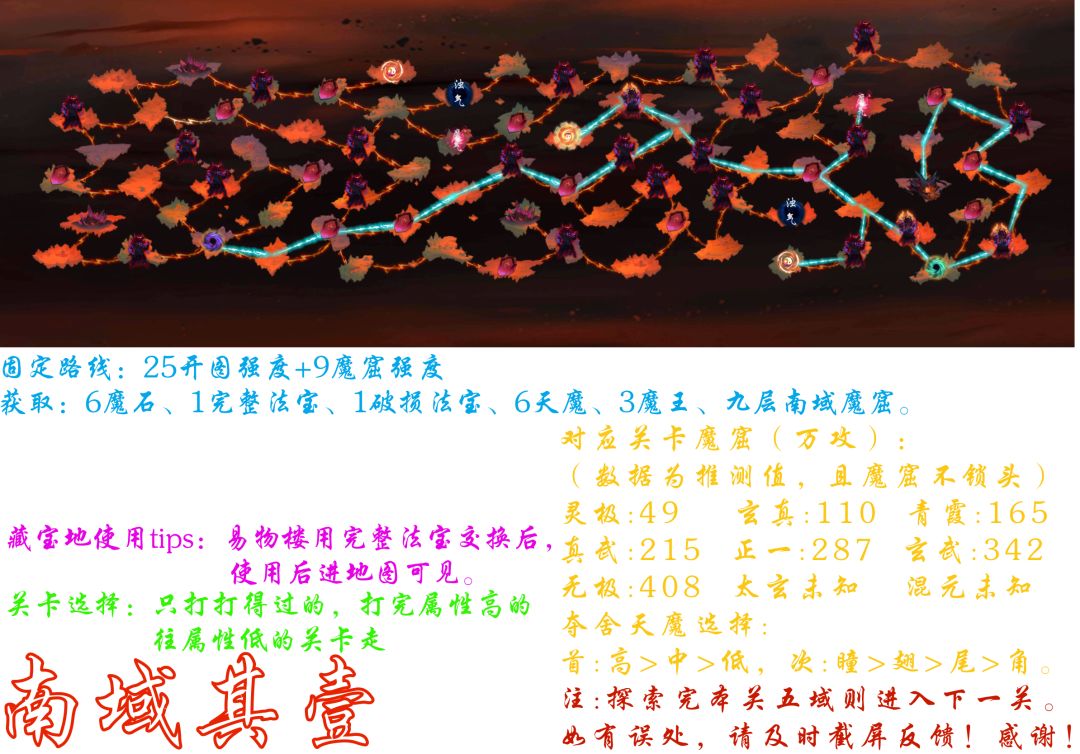 浊气
浊气
固定路线：25开图强度+9魔窟强度
获取：6魔石、1完整法宝、1破损法宝、6天魔、3魔王、九层南域魔窟。
对应关卡魔窟（万攻）：
（数据为推测值，且魔窟不锁头）
灵极:49 玄真:110 青霞:165
真武:215 正一:287 玄武:342
无极:408 太玄未知 混元未知
夺舍天魔选择：
首:高>中>低，次:瞳>翅>尾>角。
注:探索完本关五域则进入下一关。
如有误处，请及时截屏反馈！感谢！
藏宝地使用tips：易物楼用完整法宝交换后，
使用后进地图可见。
关卡选择：只打打得过的，打完属性高的
往属性低的关卡走
南域其壹